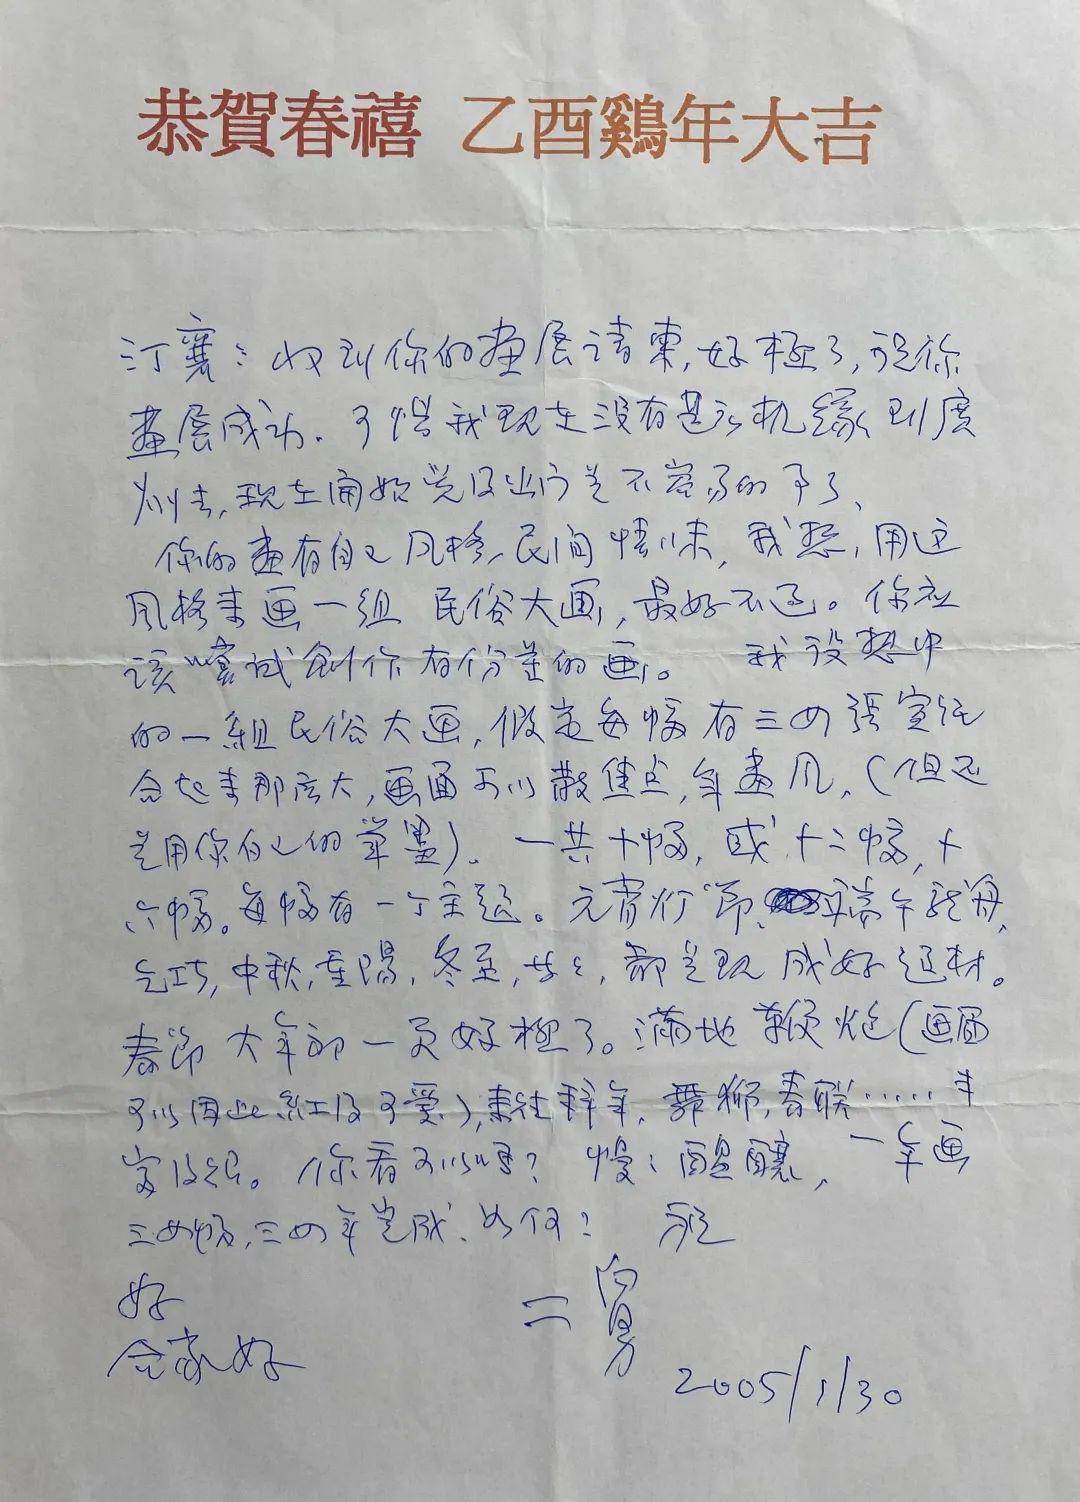 恭賀春禧 乙酉鷄年大吉
汀襄：收到你的畫展請柬，好極了，祝你
畫展成功．可惜我现在没有甚么机緣到廣
州去，现在開始覺得出门是不容易的事了、
你的畫有自己风格、民间情味，我想，用这
风格来画一组 民俗大画，最好不过。你应
该嚐試創作有份量的画。 我设想中
的一組民俗大画，假定每幅有三四張宣纸
合起来那么大，画面可以散焦点，年畫风，（但还
是用你自己的筆墨）、一共十幅，或十二幅，十
六幅。每幅有一个主题。元宵灯節、端午龍舟，
乞巧，中秋，重陽，冬至，等等，都是现成好题材。
春節大年初一更好極了。滿地鞭炮（画面
可以因此紅得可愛），来往拜年，舞獅，春联……丰
富得很。你看可以嗎？ 慢：醞釀，一年画
三四幅，三四年完成、如何？ 祝
好
二舅
全家好
2005/1/30